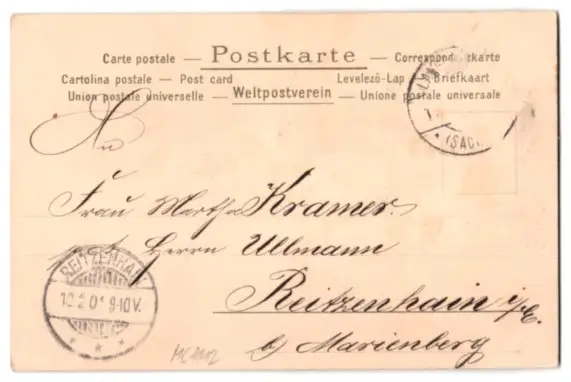 Carte postale — Postkarte — Correspondenzkarte
Cartolina postale — Post card Levelezö-Lap — Briefkaart
Union postale universelle — Weltpostverein — Unione postale universale
(SAC
An
Frau Martha Kramer.
Herrn Ullmann
REITZENHAIN
10.2.01 9-10V.
* * *
Reitzenhain i/E.
b/ Marienberg